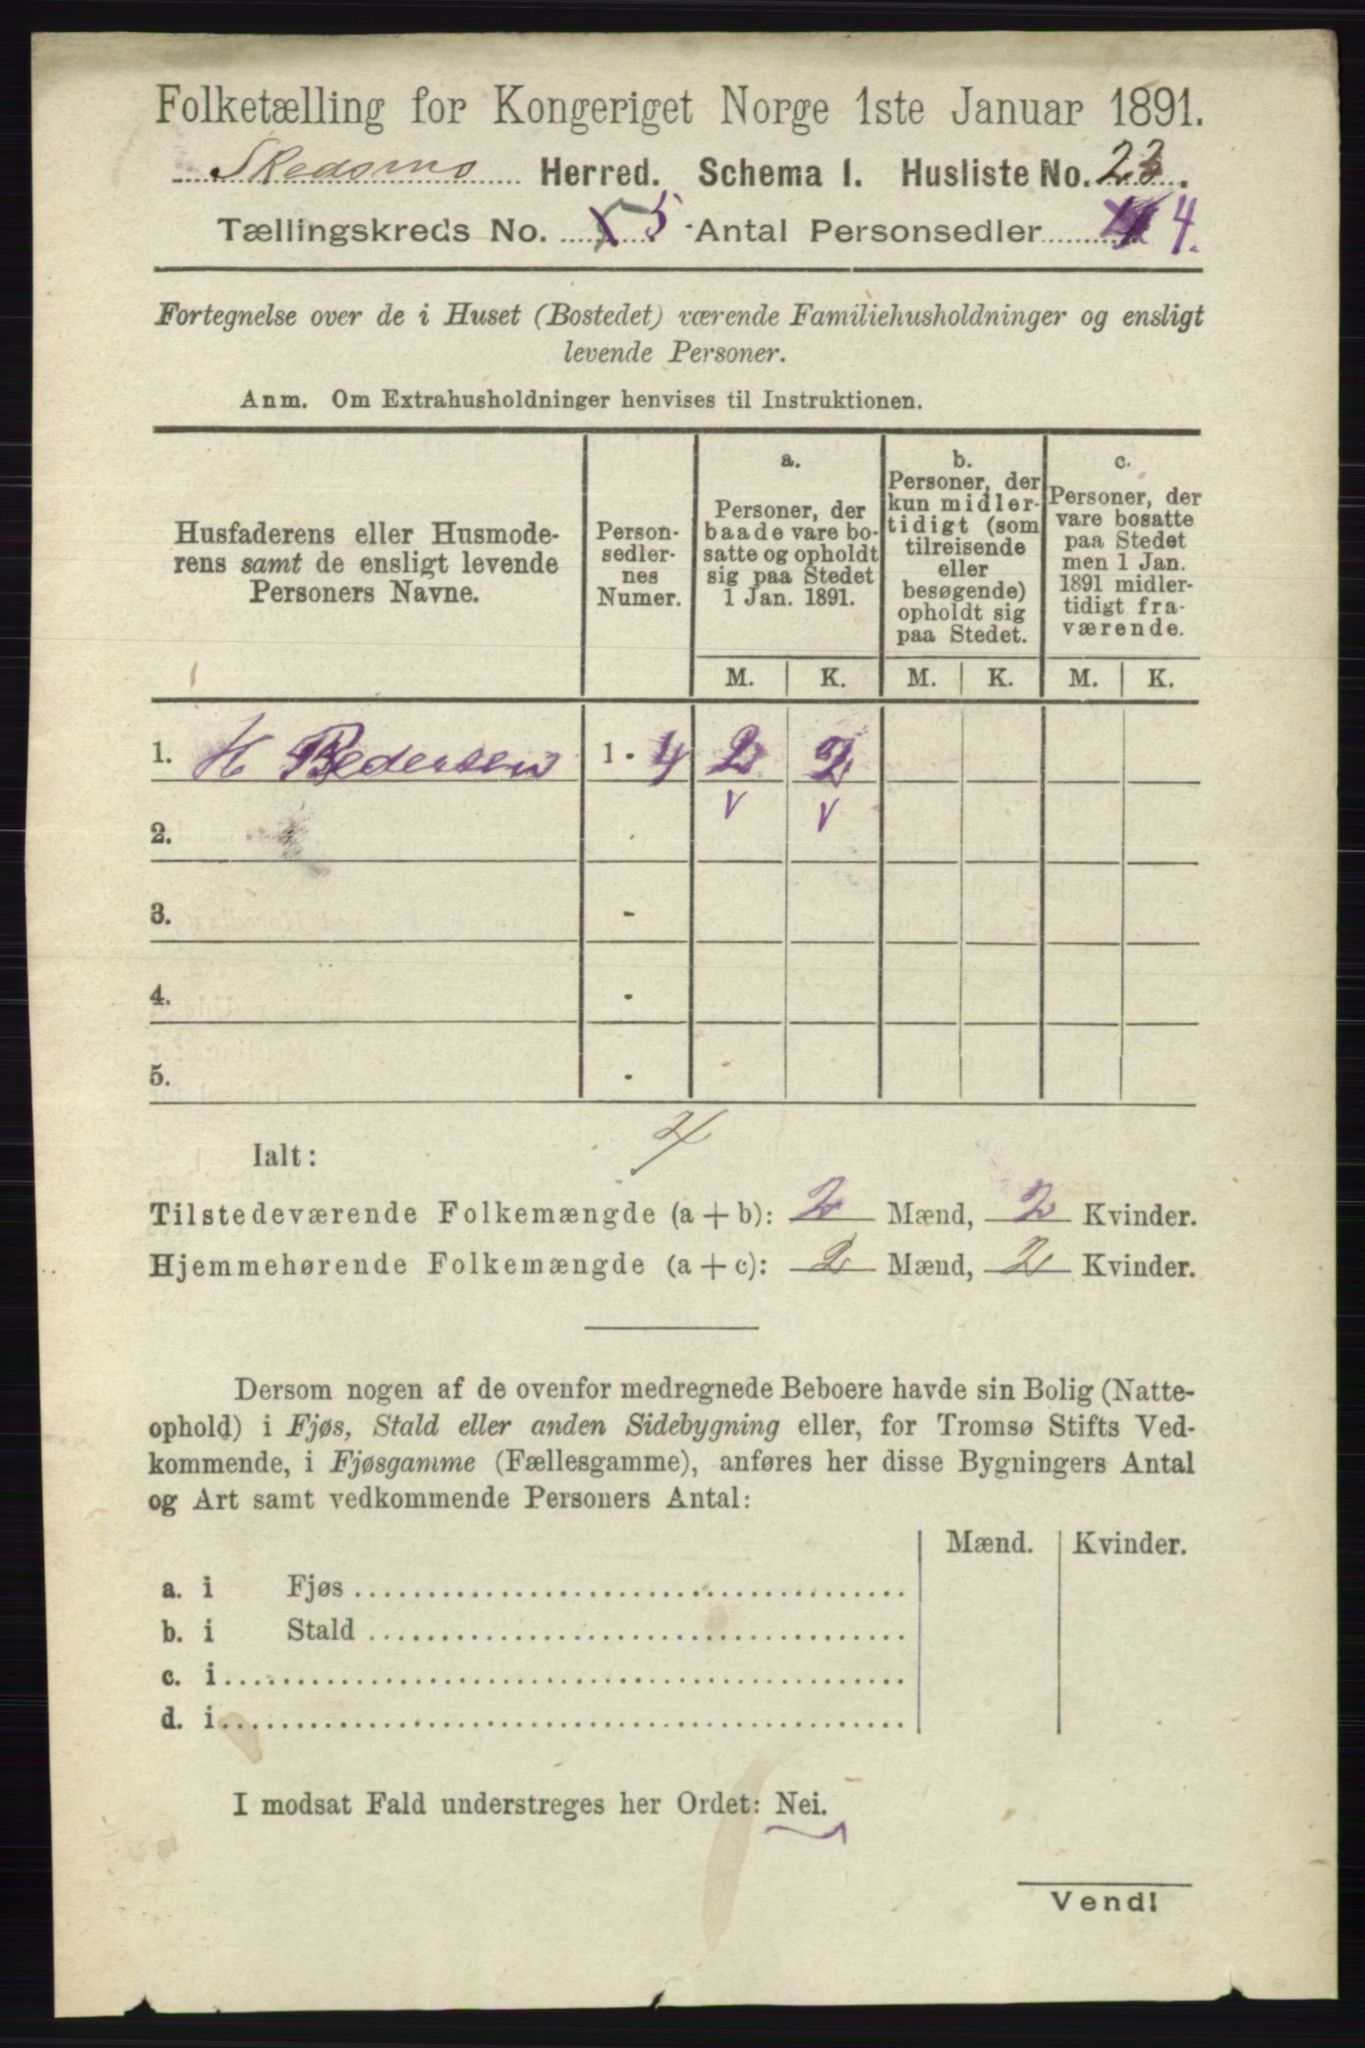 Folketælling for Kongeriget Norge 1ste Januar 1891.
Skedsmo Herred. Schema 1. Husliste No. 23.
Tællingskreds No. 5 Antal Personsedler 4.
Fortegnelse over de i Huset (Bostedet) værende Familiehusholdninger og ensligt
levende Personer.
Anm. Om Extrahusholdninger henvises til Instruktionen.
Husfaderens eller Husmode-
rens samt de ensligt levende
Personers Navne.
Person-
sedler-
nes
Numer.
a.
Personer, der
baade vare bo-
satte og opholdt
sig paa Stedet
1 Jan. 1891.
b.
Personer, der
kun midler-
tidigt (som
tilreisende
eller
besøgende)
opholdt sig
paa Stedet.
c.
Personer, der
vare bosatte
paa Stedet
men 1 Jan.
1891 midler-
tidigt fra-
værende.
M. K. M. K. M. K.
1. H Pedersen 1 - 4 2 2
v v
2. -
3. -
4. -
5. -
4
Ialt:
Tilstedeværende Folkemængde (a + b): 2 Mænd, 2 Kvinder.
Hjemmehørende Folkemængde (a + c): 2 Mænd, 2 Kvinder.
Dersom nogen af de ovenfor medregnede Beboere havde sin Bolig (Natte-
ophold) i Fjøs, Stald eller anden Sidebygning eller, for Tromsø Stifts Ved-
kommende, i Fjøsgamme (Fællesgamme), anføres her disse Bygningers Antal
og Art samt vedkommende Personers Antal:
Mænd. Kvinder.
a. i Fjøs
b. i Stald
c. i
d. i
I modsat Fald understreges her Ordet: Nei.
Vend!